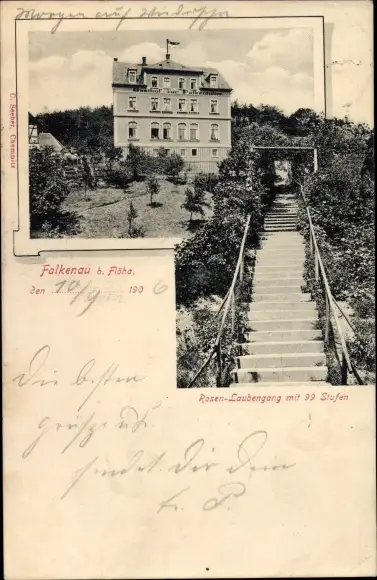 Morgen auf
C. Seeber, Chemnitz
Falkenau b. Flöha,
den 10/9 190 6
Rosen-Laubengang mit 99 Stufen
Die besten
sendet Dir Dein